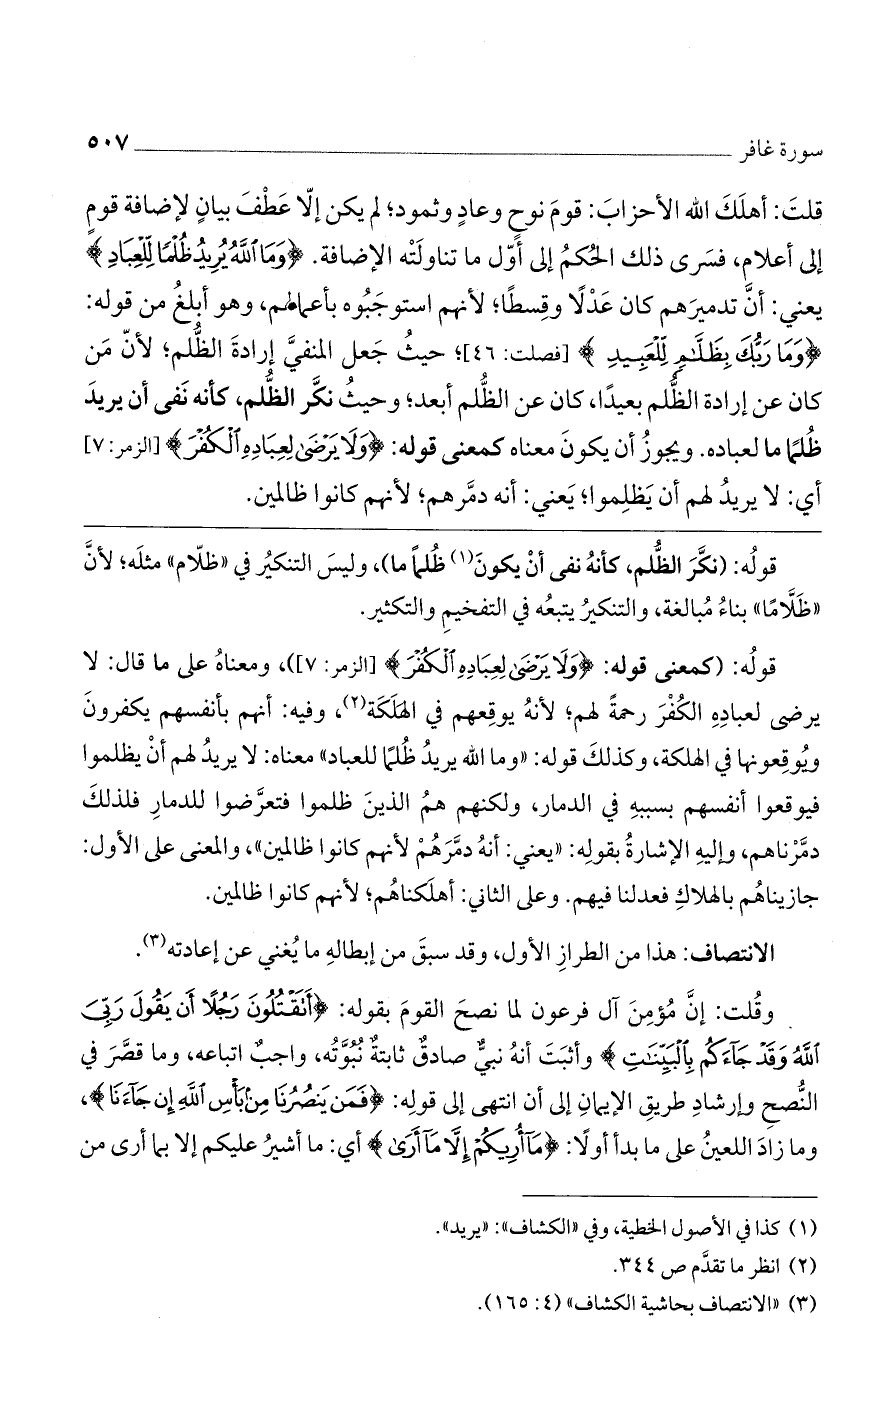 سورة غافر ٥٠٧
قلتَ: أهلَكَ الله الأحزابَ: قومَ نوحٍ وعادٍ وثمود؛ لم يكن إلّا عَطْفَ بيانٍ لإضافة قومٍ
إلى أعلام، فسَرى ذلك الحُكمُ إلى أوّل ما تناولَتْه الإضافة. ﴿وَمَا ٱللَّهُ يُرِيدُ ظُلْمًا لِّلْعِبَادِ﴾
يعني: أنَّ تدميرَهم كان عَدْلًا وقِسطًا؛ لأنهم استوجَبُوه بأعمالهم، وهو أبلغُ من قوله:
﴿وَمَا رَبُّكَ بِظَلَّٰمٍ لِّلْعَبِيدِ﴾ [فصلت: ٤٦]؛ حيثُ جَعل المنفيَّ إرادةَ الظُّلم؛ لأنّ مَن
كان عن إرادة الظُّلم بعيدًا، كان عن الظُّلم أبعد؛ وحيثُ نكَّر الظُّلم، كأنه نَفى أن يريدَ
ظُلمًا ما لعباده. ويجوزُ أن يكونَ معناه كمعنى قوله: ﴿وَلَا يَرْضَىٰ لِعِبَادِهِ ٱلْكُفْرَ﴾ [الزمر: ٧]
أي: لا يريدُ لهم أن يَظلِموا؛ يَعني: أنه دمَّرهم؛ لأنهم كانوا ظالمين.
قولُه: (نكَّرَ الظُّلم، كأنهُ نفى أنْ يكونَ(١) ظُلماً ما)، وليسَ التنكيرُ في «ظلّام» مثلَه؛ لأنَّ
«ظَلَّامًا» بناءُ مُبالغة، والتنكيرُ يتبعُه في التفخيمِ والتكثير.
قولُه: (كمعنى قوله: ﴿وَلَا يَرْضَىٰ لِعِبَادِهِ ٱلْكُفْرَ﴾ [الزمر: ٧])، ومعناهُ على ما قال: لا
يرضى لعبادِهِ الكُفْرَ رحمةً لهم؛ لأنهُ يوقِعهم في الهَلَكَة(٢)، وفيه: أنهم بأنفسهم يكفرونَ
ويُوقِعونها في الهلكة، وكذلكَ قوله: «وما الله يريدُ ظُلمًا للعباد» معناه: لا يريدُ لهم أنْ يظلموا
فيوقعوا أنفسهم بسببهِ في الدمار، ولكنهم همُ الذينَ ظلموا فتعرَّضوا للدمارِ فلذلكَ
دمَّرْناهم، وإليهِ الإشارةُ بقولِه: «يعني: أنهُ دمَّرَهُمْ لأنهم كانوا ظالمين»، والمعنى على الأول:
جازيناهُم بالهلاكِ فعدلنا فيهم. وعلى الثاني: أهلَكناهُم؛ لأنهم كانوا ظالمين.
الانتصاف: هذا من الطرازِ الأول، وقد سبقَ من إبطالهِ ما يُغني عن إعادته(٣).
وقُلت: إنَّ مُؤمِنَ آل فرعون لما نصحَ القومَ بقوله: ﴿أَتَقْتُلُونَ رَجُلًا أَن يَقُولَ رَبِّىَ
ٱللَّهُ وَقَدْ جَآءَكُم بِٱلْبَيِّنَٰتِ﴾ وأثبتَ أنهُ نبيٌّ صادقٌ ثابتةٌ نُبُوَّتُه، واجبٌ اتباعه، وما قصَّرَ في
النُّصحِ وإرشادِ طريقِ الإيمانِ إلى أن انتهى إلى قولِه: ﴿فَمَن يَنصُرُنَا مِنۢ بَأْسِ ٱللَّهِ إِن جَآءَنَا﴾،
وما زادَ اللعينُ على ما بدأ أولًا: ﴿مَآ أُرِيكُمْ إِلَّا مَآ أَرَىٰ﴾ أي: ما أشيرُ عليكم إلا بما أرى من
(١) كذا في الأصول الخطية، وفي «الكشاف»: «يريد».
(٢) انظر ما تقدَّم ص ٣٤٤.
(٣) «الانتصاف بحاشية الكشاف» (٤: ١٦٥).